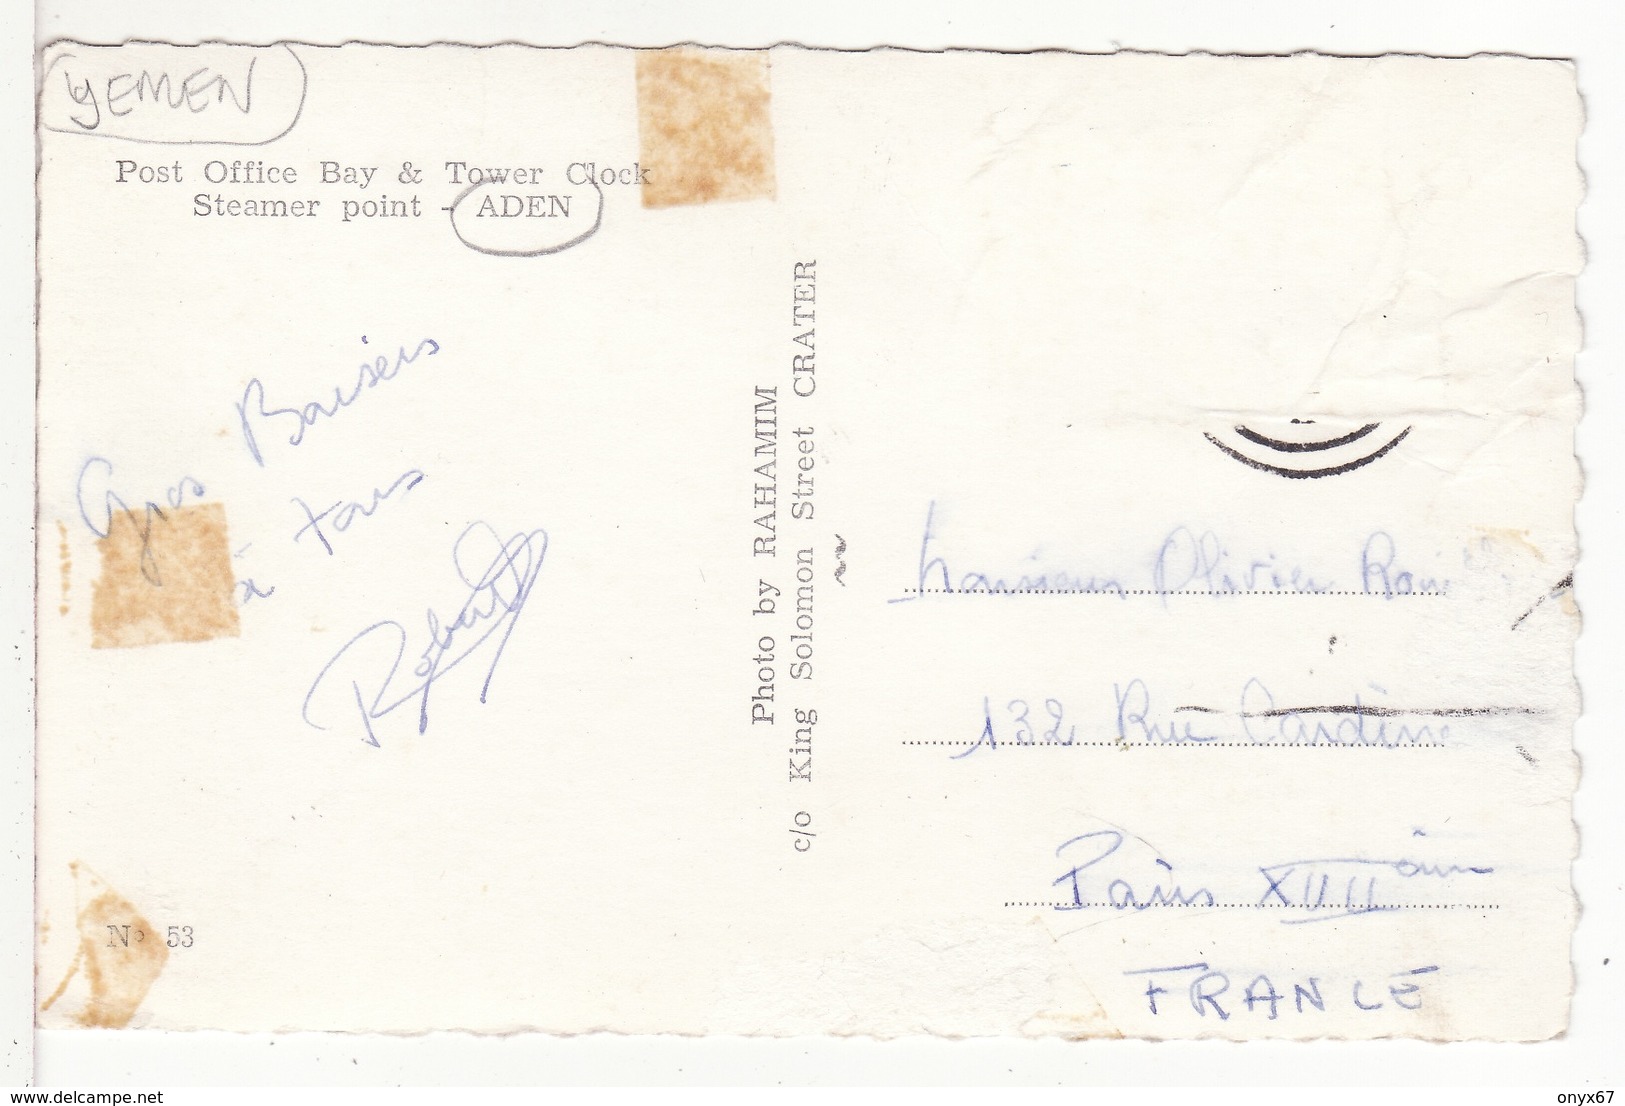 YEMEN
Post Office Bay & Tower Clock
Steamer point - ADEN
Gros Baisers
à tous
Robert
Nº 53
Photo by RAHAMIM
c/o King Solomon Street CRATER
Monsieur Olivier
132 Rue
Paris
FRANCE
www.delcampe.net
onyx67